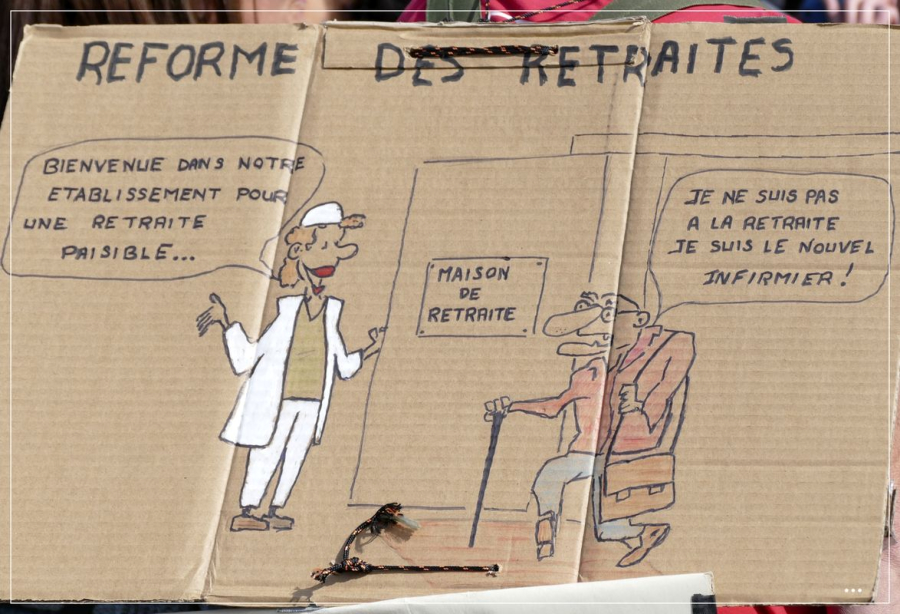 REFORME DES RETRAITES
BIENVENUE DANS NOTRE
ETABLISSEMENT POUR
UNE RETRAITE
PAISIBLE...
MAISON
DE
RETRAITE
JE NE SUIS PAS
A LA RETRAITE
JE SUIS LE NOUVEL
INFIRMIER !